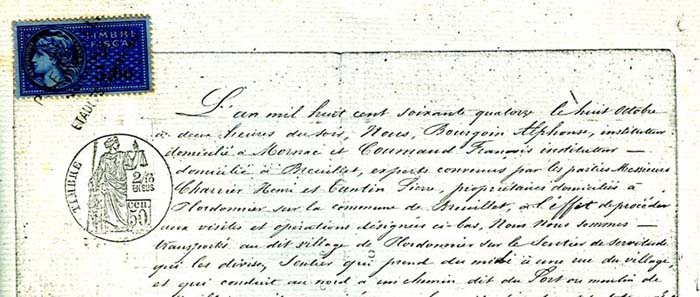 TIMBRE
FISCAL
ETAULES
TIMBRE
2/10
EN SUS
cen.
50
L'an mil huit cent soixante quatorze le huit Octobre
à deux heures du soir, Nous, Bourgoin Alphonse, instituteur
domicilié à Mornac et Coumand François instituteur –
domicilié à Breuillet, experts convenus par les parties Messieurs
Charrier Henri et Tantin Pierre, propriétaires domiciliés à
Plordonnier sur la commune de Breuillet, à l'effet de procéder
aux visites et opérations désignées ci-bas, Nous Nous sommes –
transportés au dit village de Plordonnier sur le Sentier de servitude
qui les divise, Sentier qui prend du midi à une rue du village,
et qui conduit au nord à un chemin dit du Port au moulin de